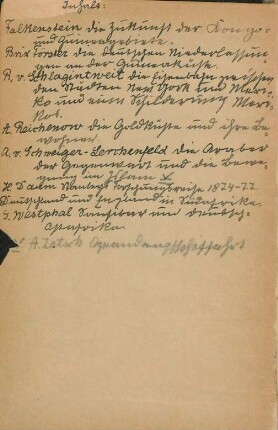 Inhalt:
Falkenstein die Zukunft der Kongo-
und Guineagebiete.
Brix Förster die deutschen Niederlassun
gen an der Guineaküste.
R. v. Schlagintweit die Eisenbahn zwischen
den Städten New York und Mexi-
ko und eine Schilderung Mexi-
kos.
A. Reichenow die Goldküste und ihre Be
wohner
A. v. Schweiger-Lerchenfeld die Araber
der Gegenwart und die Bewe-
gung im Islam
Stanleys Forschungsreise 1874-77.
Deutschland und England in Südafrika.
G. Westphal Sansibar und deutsch.
Ostafrika.
A.